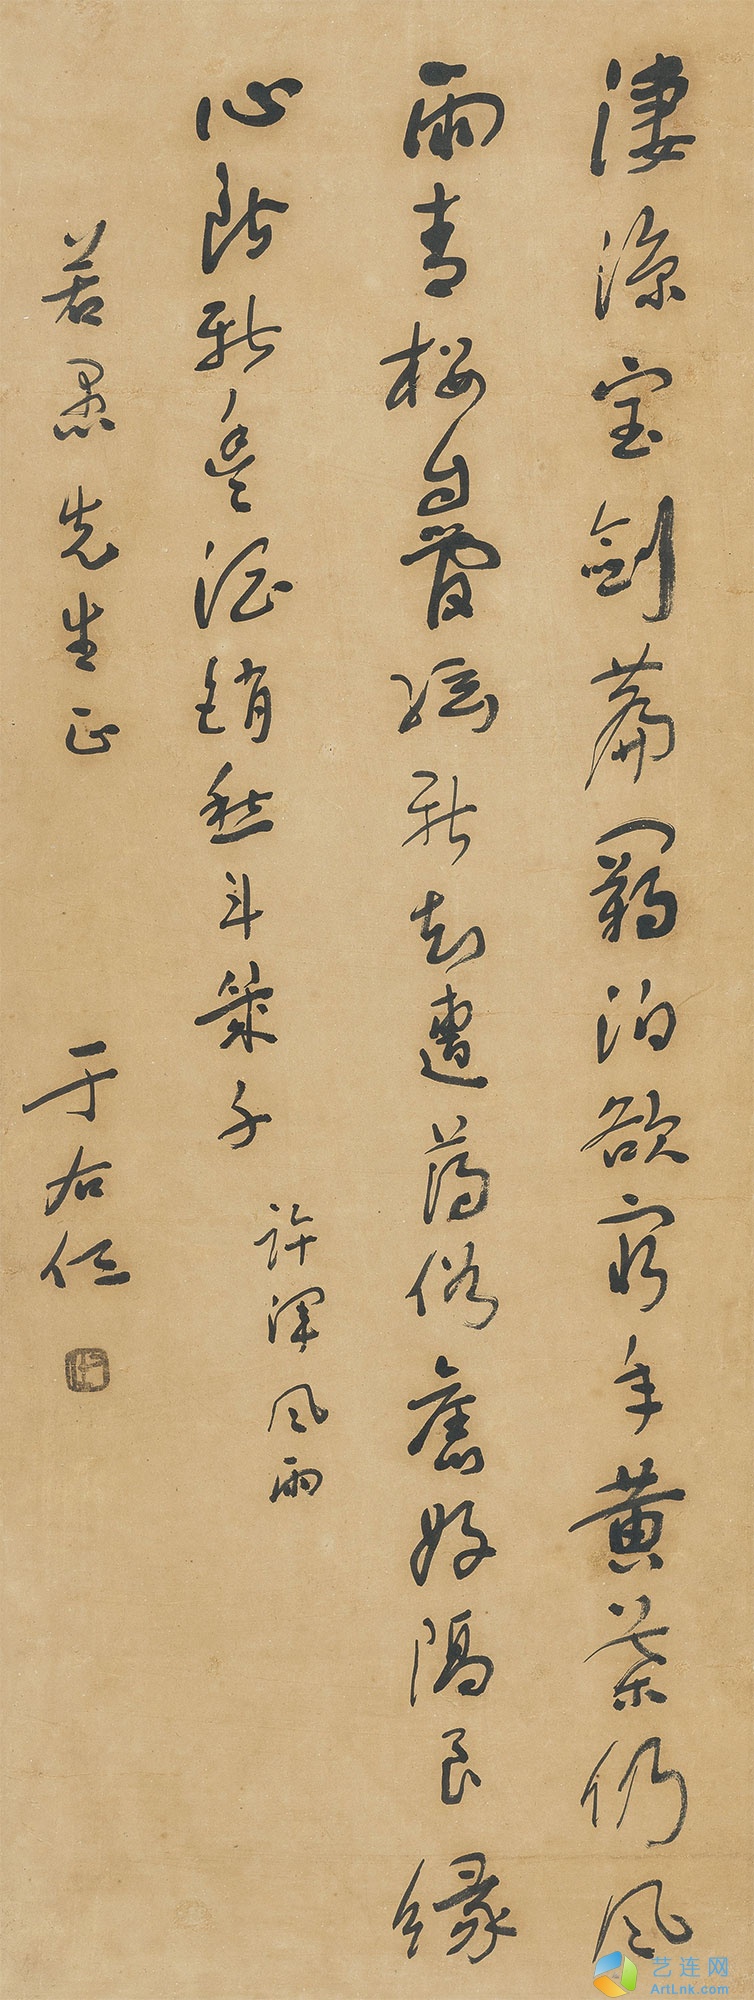 淒涼宝劍篇羈泊欲窮年黃葉仍風
雨青樓自管絃新知遭薄俗舊好隔良緣
心斷新豐酒銷愁斗幾千
許渾風雨
若愚先生正
于右任
艺连网
ArtLnk.com